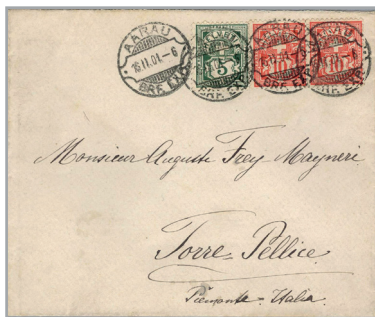 AARAU
16.II.01.-6
BRF. EXP.
5
10
10
Monsieur Auguste Frey Mayneri
Torre-Pellice
Piemonte - Italia.